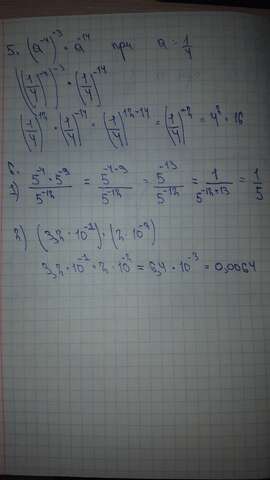 5. (a⁻⁴)⁻³ · a⁻¹⁴ при a = 1/4
((1/4)⁻⁴)⁻³ · (1/4)⁻¹⁴
(1/4)¹² · (1/4)⁻¹⁴ = (1/4)¹²⁻¹⁴ = (1/4)⁻² = 4² = 16
1) 5⁻⁴ · 5⁻⁹ / 5⁻¹² = 5⁻⁴⁻⁹ / 5⁻¹² = 5⁻¹³ / 5⁻¹² = 1 / 5⁻¹²⁺¹³ = 1/5
2) (3,2 · 10⁻¹) · (2 · 10⁻²)
3,2 · 10⁻¹ · 2 · 10⁻² = 6,4 · 10⁻³ = 0,0064